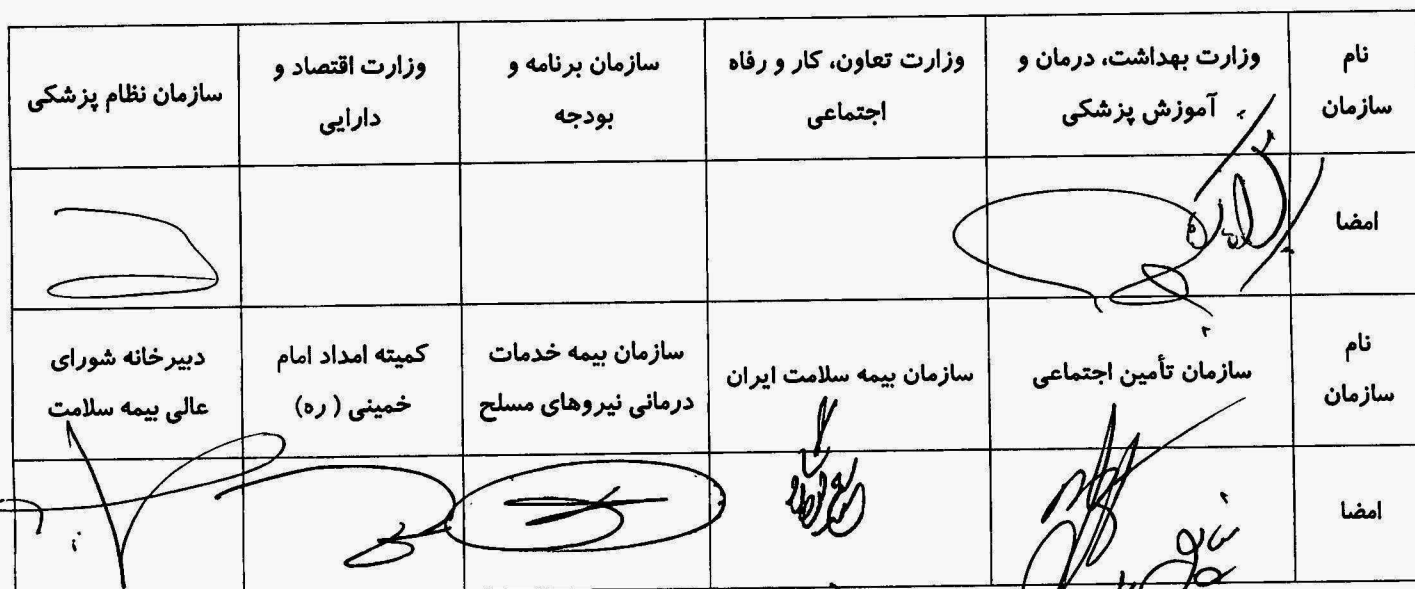 نام
سازمان
وزارت بهداشت، درمان و
آموزش پزشکی
وزارت تعاون، کار و رفاه
اجتماعی
سازمان برنامه و
بودجه
وزارت اقتصاد و
دارایی
سازمان نظام پزشکی
امضا
نام
سازمان
سازمان تأمین اجتماعی
سازمان بیمه سلامت ایران
سازمان بیمه خدمات
درمانی نیروهای مسلح
کمیته امداد امام
خمینی ( ره)
دبیرخانه شورای
عالی بیمه سلامت
امضا